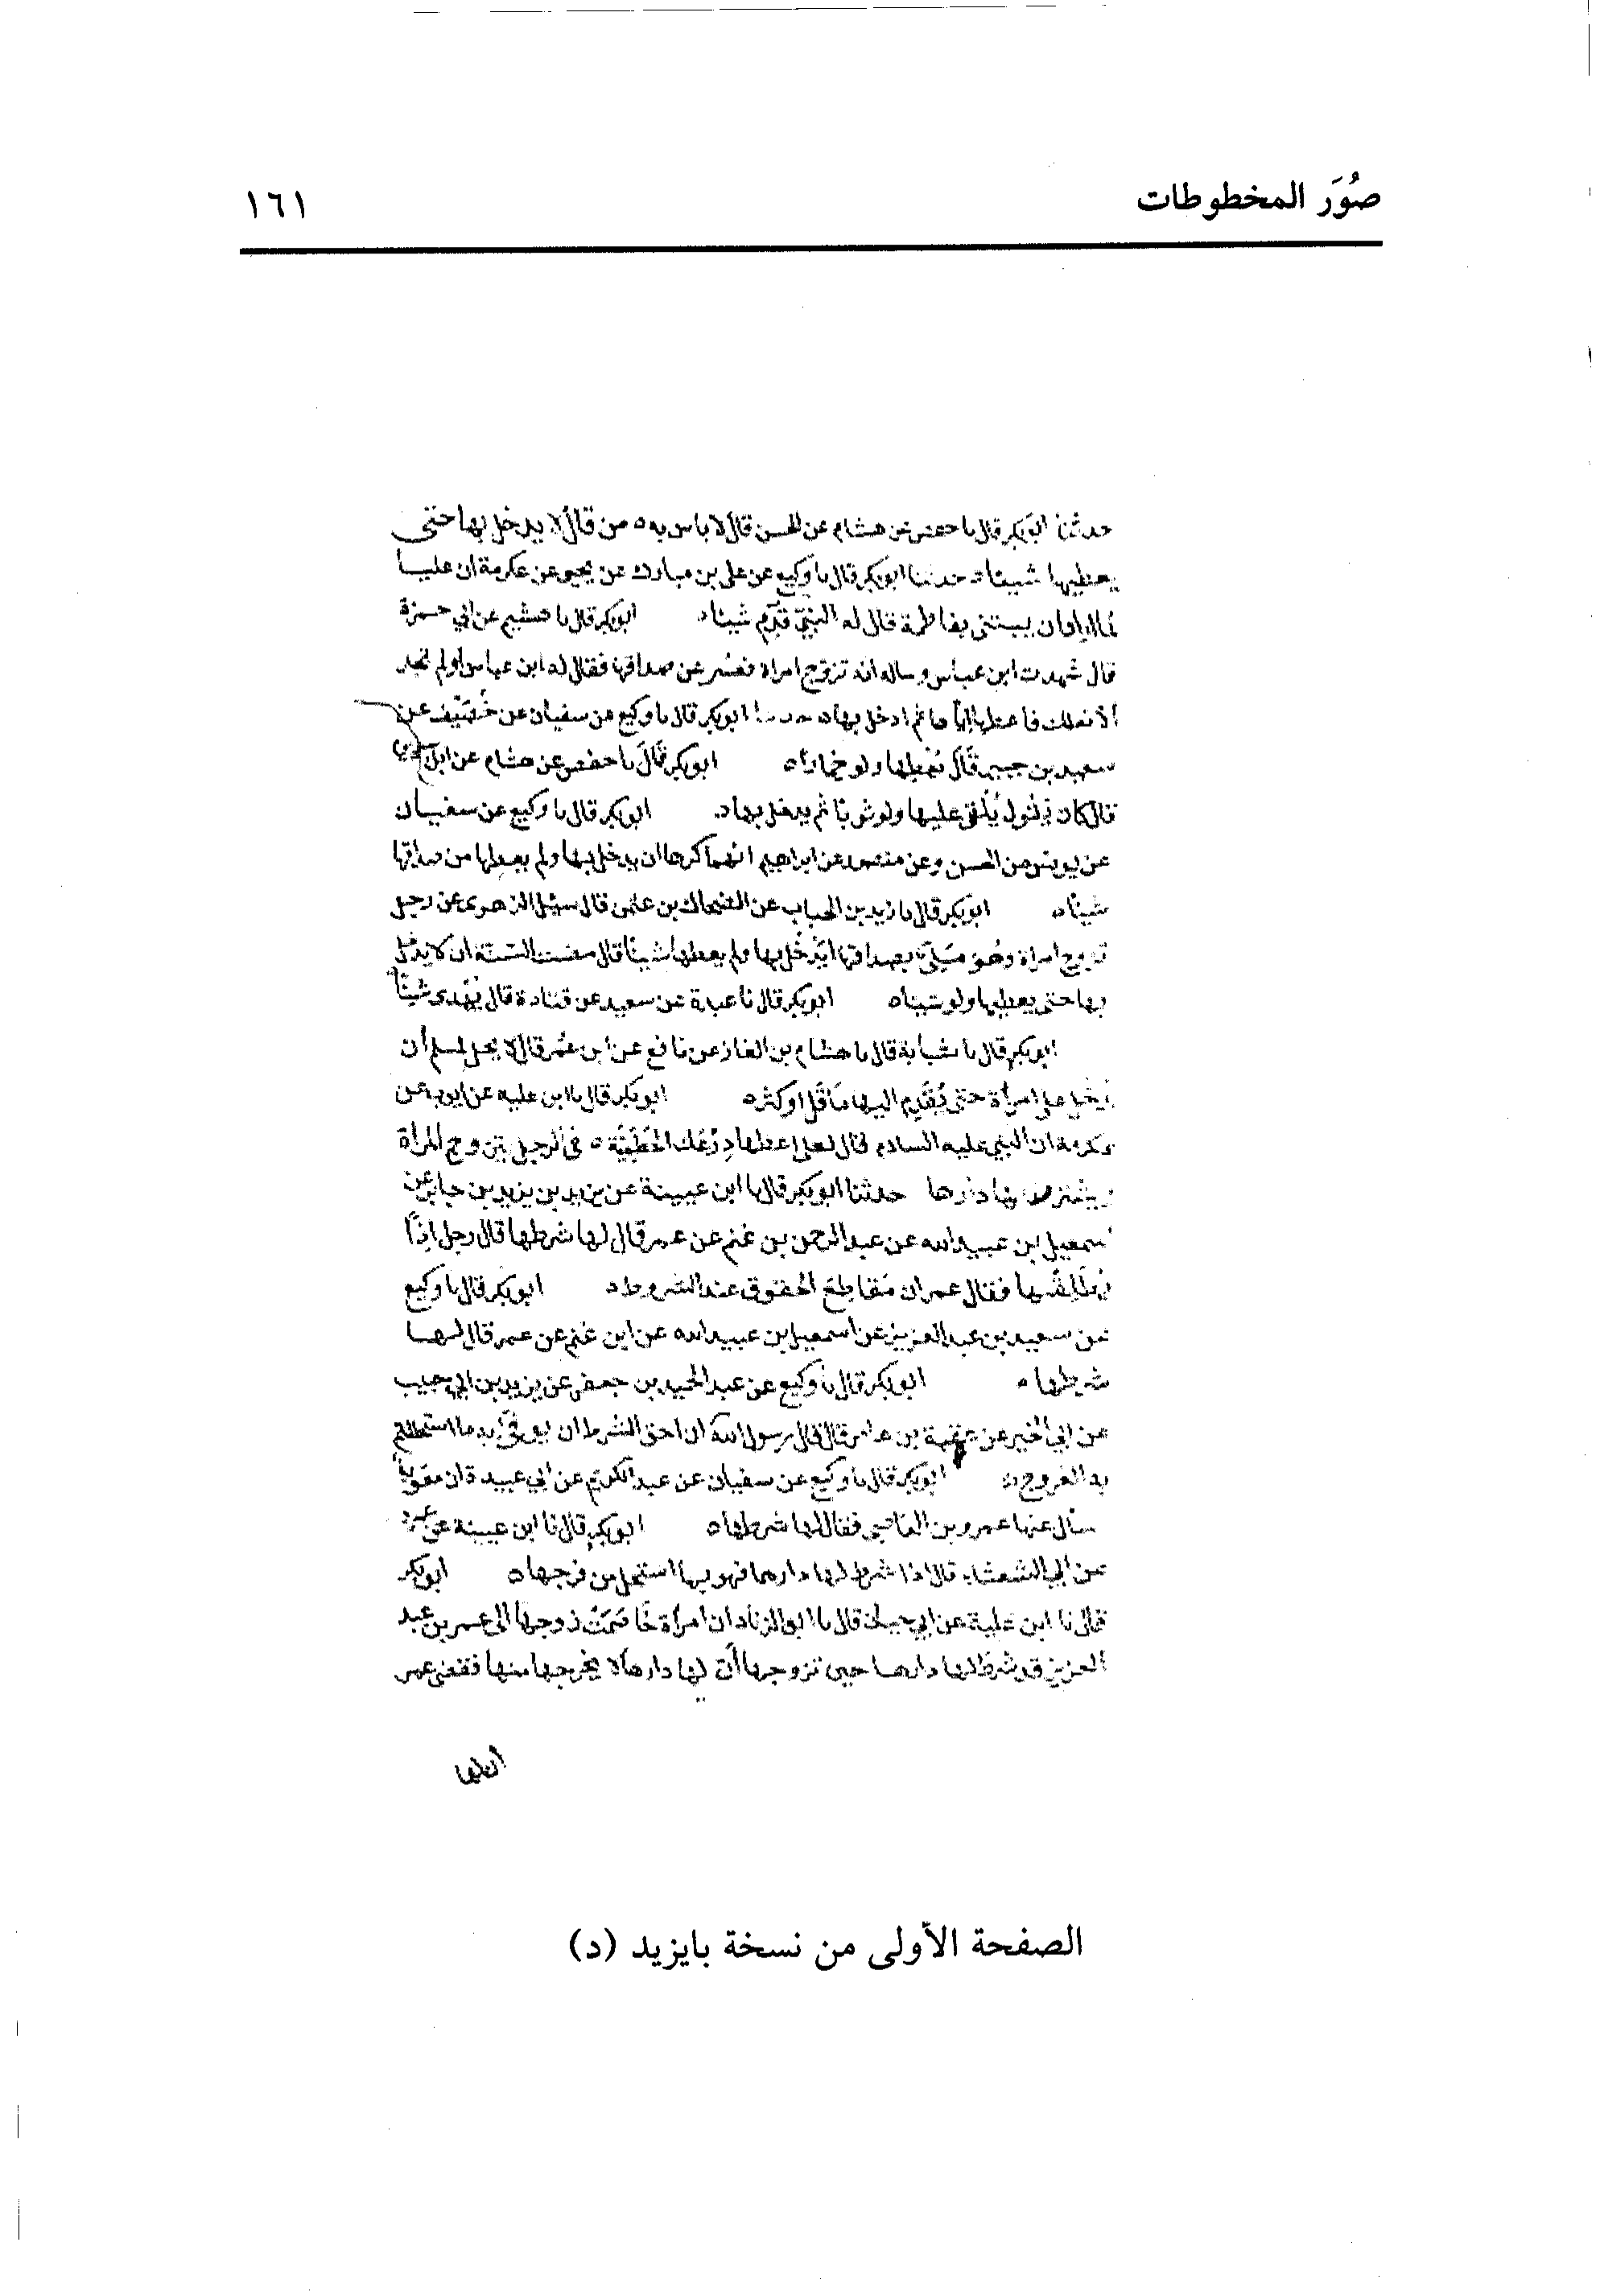 صُوَر المخطوطات
١٦١
حدثنا ابو بكر قال نا حفص عن هشام عن الحسن قال لا باس به ه من قال لا يدخل بها حتى
يعطيها شيئا ه حدثنا ابو بكر قال نا وكيع عن علي بن مبارك عن يحيى عن عكرمة ان عليا
لما اراد ان يبتني بفاطمة قال له النبي قدّم شيئا ه ابو بكر قال نا هشيم عن ابي حمزة
قال شهدت ابن عباس وساله انه تزوج امراة فعسر عن صداقها فقال له ابن عباس لو لم تجد
الا نعلك فاعطها اياها ثم ادخل بها ه حدثنا ابو بكر قال نا وكيع عن سفيان عن خُصَيْف عن
سعيد بن جبير قَالَ يُعْطِها ولو خمارًا ه ابو بكر قَالَ نا حفص عن هشام عن ابن سيرين
قال كان يقول يُلْقِي عليها ولو ثوبا ثم يدخل بها ه ابو بكر قال نا وكيع عن سفيان
عن يونس عن الحسن وعن منصور عن ابراهيم انهما كرها ان يدخل بها ولم يعطها من صداقها
شيئًا ه ابو بكر قال نا زيد بن الحباب عن الضحاك بن عثمن قال سئل الزهرى عن رجل
تزوج امراة وهُو مَلِيّ بصداقها ايَدْخُل بها ولم يعطها شيئًا قال مضت السّنّة ان لا يدخل
بها حتى يعطيها ولو شيئا ه ابو بكر قال نا عبدة عن سعيد عن قتادة قال يُهْدى شيئًا
ابو بكر قال نا شبابة قال نا هشام بن الغاز عن نافع عن ابن عُمر قال لا يحل لمسلم أن
يدخل على امرأة حتى يُقَدِّم اليها مَا قَل او كثر ه ابو بكر قال نا ابن عليه عن ايوب عن
عكرمة ان النبي عليه السلام قال لعلي اعطها دِرْعَك الحُطَمِيَّة ه في الرجل يتزوج المراة
ويشترط لها دارها حدثنا ابو بكر قال نا ابن عيينة عن يزيد بن يزيد بن جابر عن
اسمعيل بن عبيد الله عن عبد الرحمن بن غنم عن عمر قال لها شرطها قال رجل اذًا
يُطَلِقْنَها فقال عمر ان مَقاطِعَ الحقوق عند الشروط ه ابو بكر قال نا وكيع
عن سعيد بن عبد العزيز عن اسمعيل بن عبيد الله عن ابن غنم عن عمر قال لها
شرطها ه ابو بكر قال نا وكيع عن عبد الحميد بن جعفر عن يزيد بن ابي حبيب
عن ابي الخير عن عقبة بن عامر قال قال رسول الله ان احق الشرط ان يوفى به ما استحللتم
به الفروج ه ابو بكر قال نا وكيع عن سفيان عن عبد الكريم عن ابي عبيدة ان معوية
سأل عنها عمرو بن العاصي فقال لها شرطها ه ابو بكر قال نا ابن عيينة عن عمرو
عن ابي الشعثاء قال اذا شرط لها دارها فهو بها استحل من فرجها ه ابو بكر
قال نا ابن علية عن ابي حيان قال نا ابو الزناد ان امرأة خَاصَمَتْ زوجها الى عمر بن عبد
العزيز قد شرط لها دارها حين تزوجها أن لها دارها لا يخرجها منها فقضى عمر
أن لها
الصفحة الأولى من نسخة بايزيد (د)